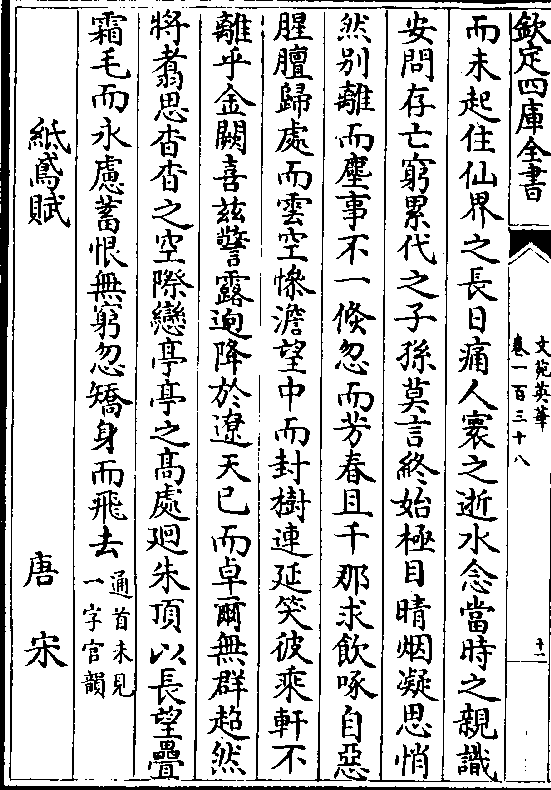 欽定四庫全書
文苑英華
卷一百三十八
十一
而未起住仙界之長日痛人寰之逝水念當時之親識
安問存亡窮累代之子孫莫言終始極目晴烟凝思悄
然别離而塵事不一倐忽而芳春且千那求飲啄自惡
腥膻歸處而雲空慘澹望中而封樹連延笑彼乘軒不
離乎金闕喜兹警露逈降於遼天已而卓爾無群超然
將翥思杳杳之空際戀亭亭之髙處廻朱頂以長望疊
霜毛而永慮蓄恨無窮忽矯身而飛去
通首未見
一字官韻
紙鳶賦 唐宋